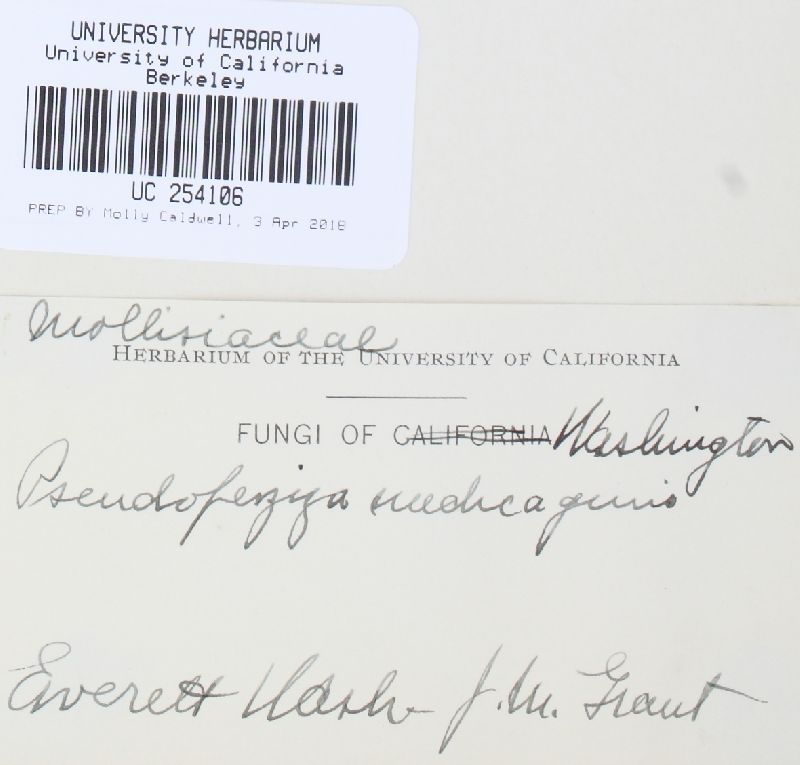 UNIVERSITY HERBARIUM
University of California
Berkeley
UC 254106
PREP BY Molly Caldwell, 3 Apr 2018
Mollisiaceae
HERBARIUM OF THE UNIVERSITY OF CALIFORNIA
FUNGI OF CALIFORNIA Washington
Pseudopeziza medicaginis
Everett Wash J. M. Grant